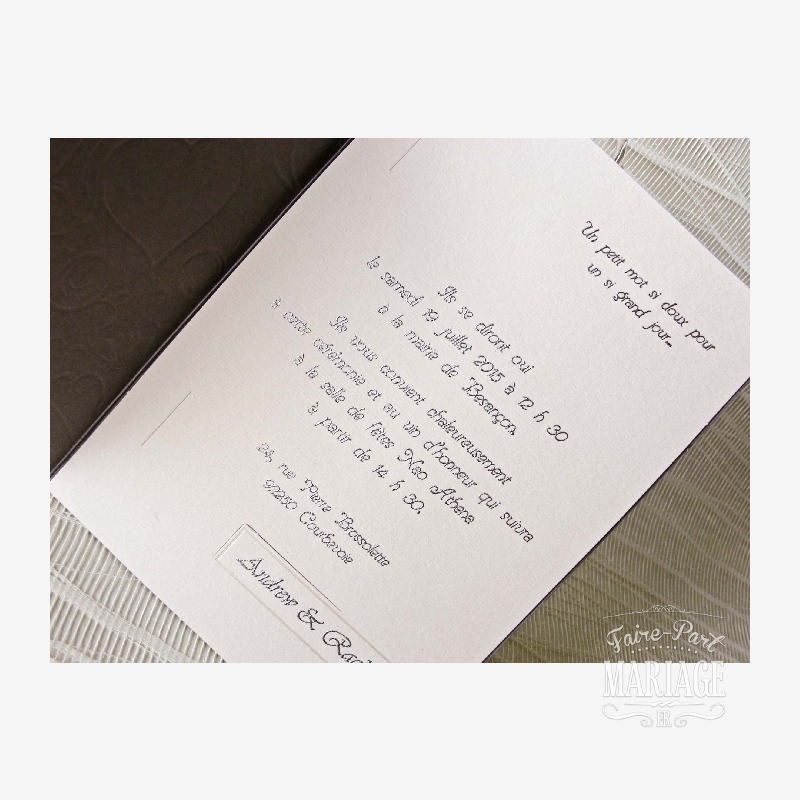 Un petit mot si doux pour
un si grand jour...
Ils se diront oui
le samedi 19 juillet 2015 à 12 h 30
à la mairie de Besançon,
Ils vous convient chaleureusement
à cette cérémonie et au vin d'honneur qui suivra
à la salle de fêtes Neo Athena
à partir de 14 h 30.
24, rue Pierre Brossolette
92250 Courbevoie
Andrew &
Faire-Part
MARIAGE
FR